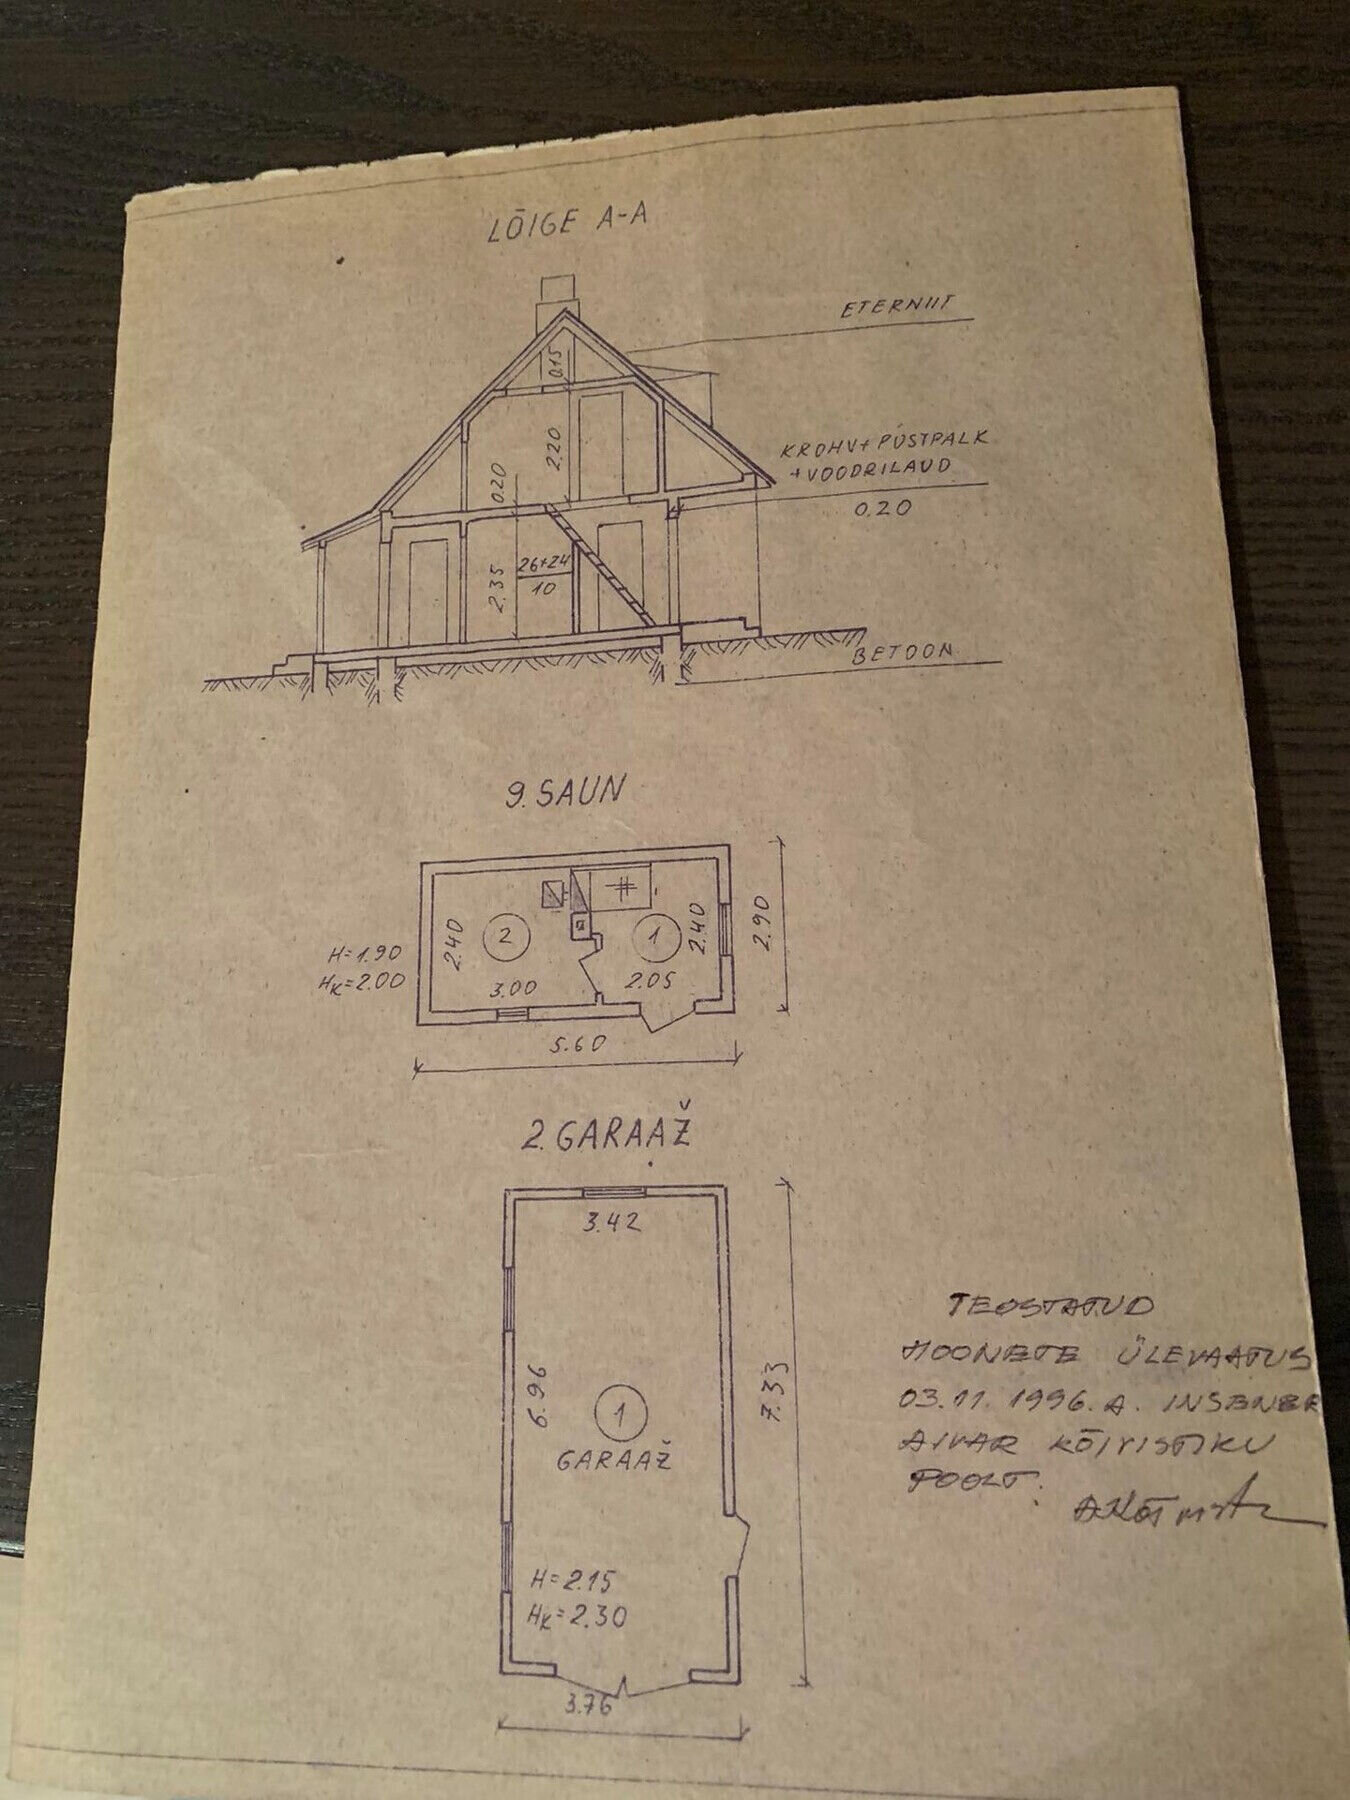 LÕIGE A-A
ETERNIIT
0.15
KROHV+PÜSTPALK
+VOODRILAUD
0.20
2.20
0.20
2.35
26+24
10
BETOON
9. SAUN
2.40
2
3.00
1
2.40
2.05
2.90
H=1.90
HK=2.00
5.60
2. GARAAŽ
3.42
6.96
1
GARAAŽ
7.33
H=2.15
HK=2.30
3.76
TEOSTATUD
HOONETE ÜLEVAATUS
03.11.1996.A. INSENER
AIVAR KÕIVISTIKU
POOLT.